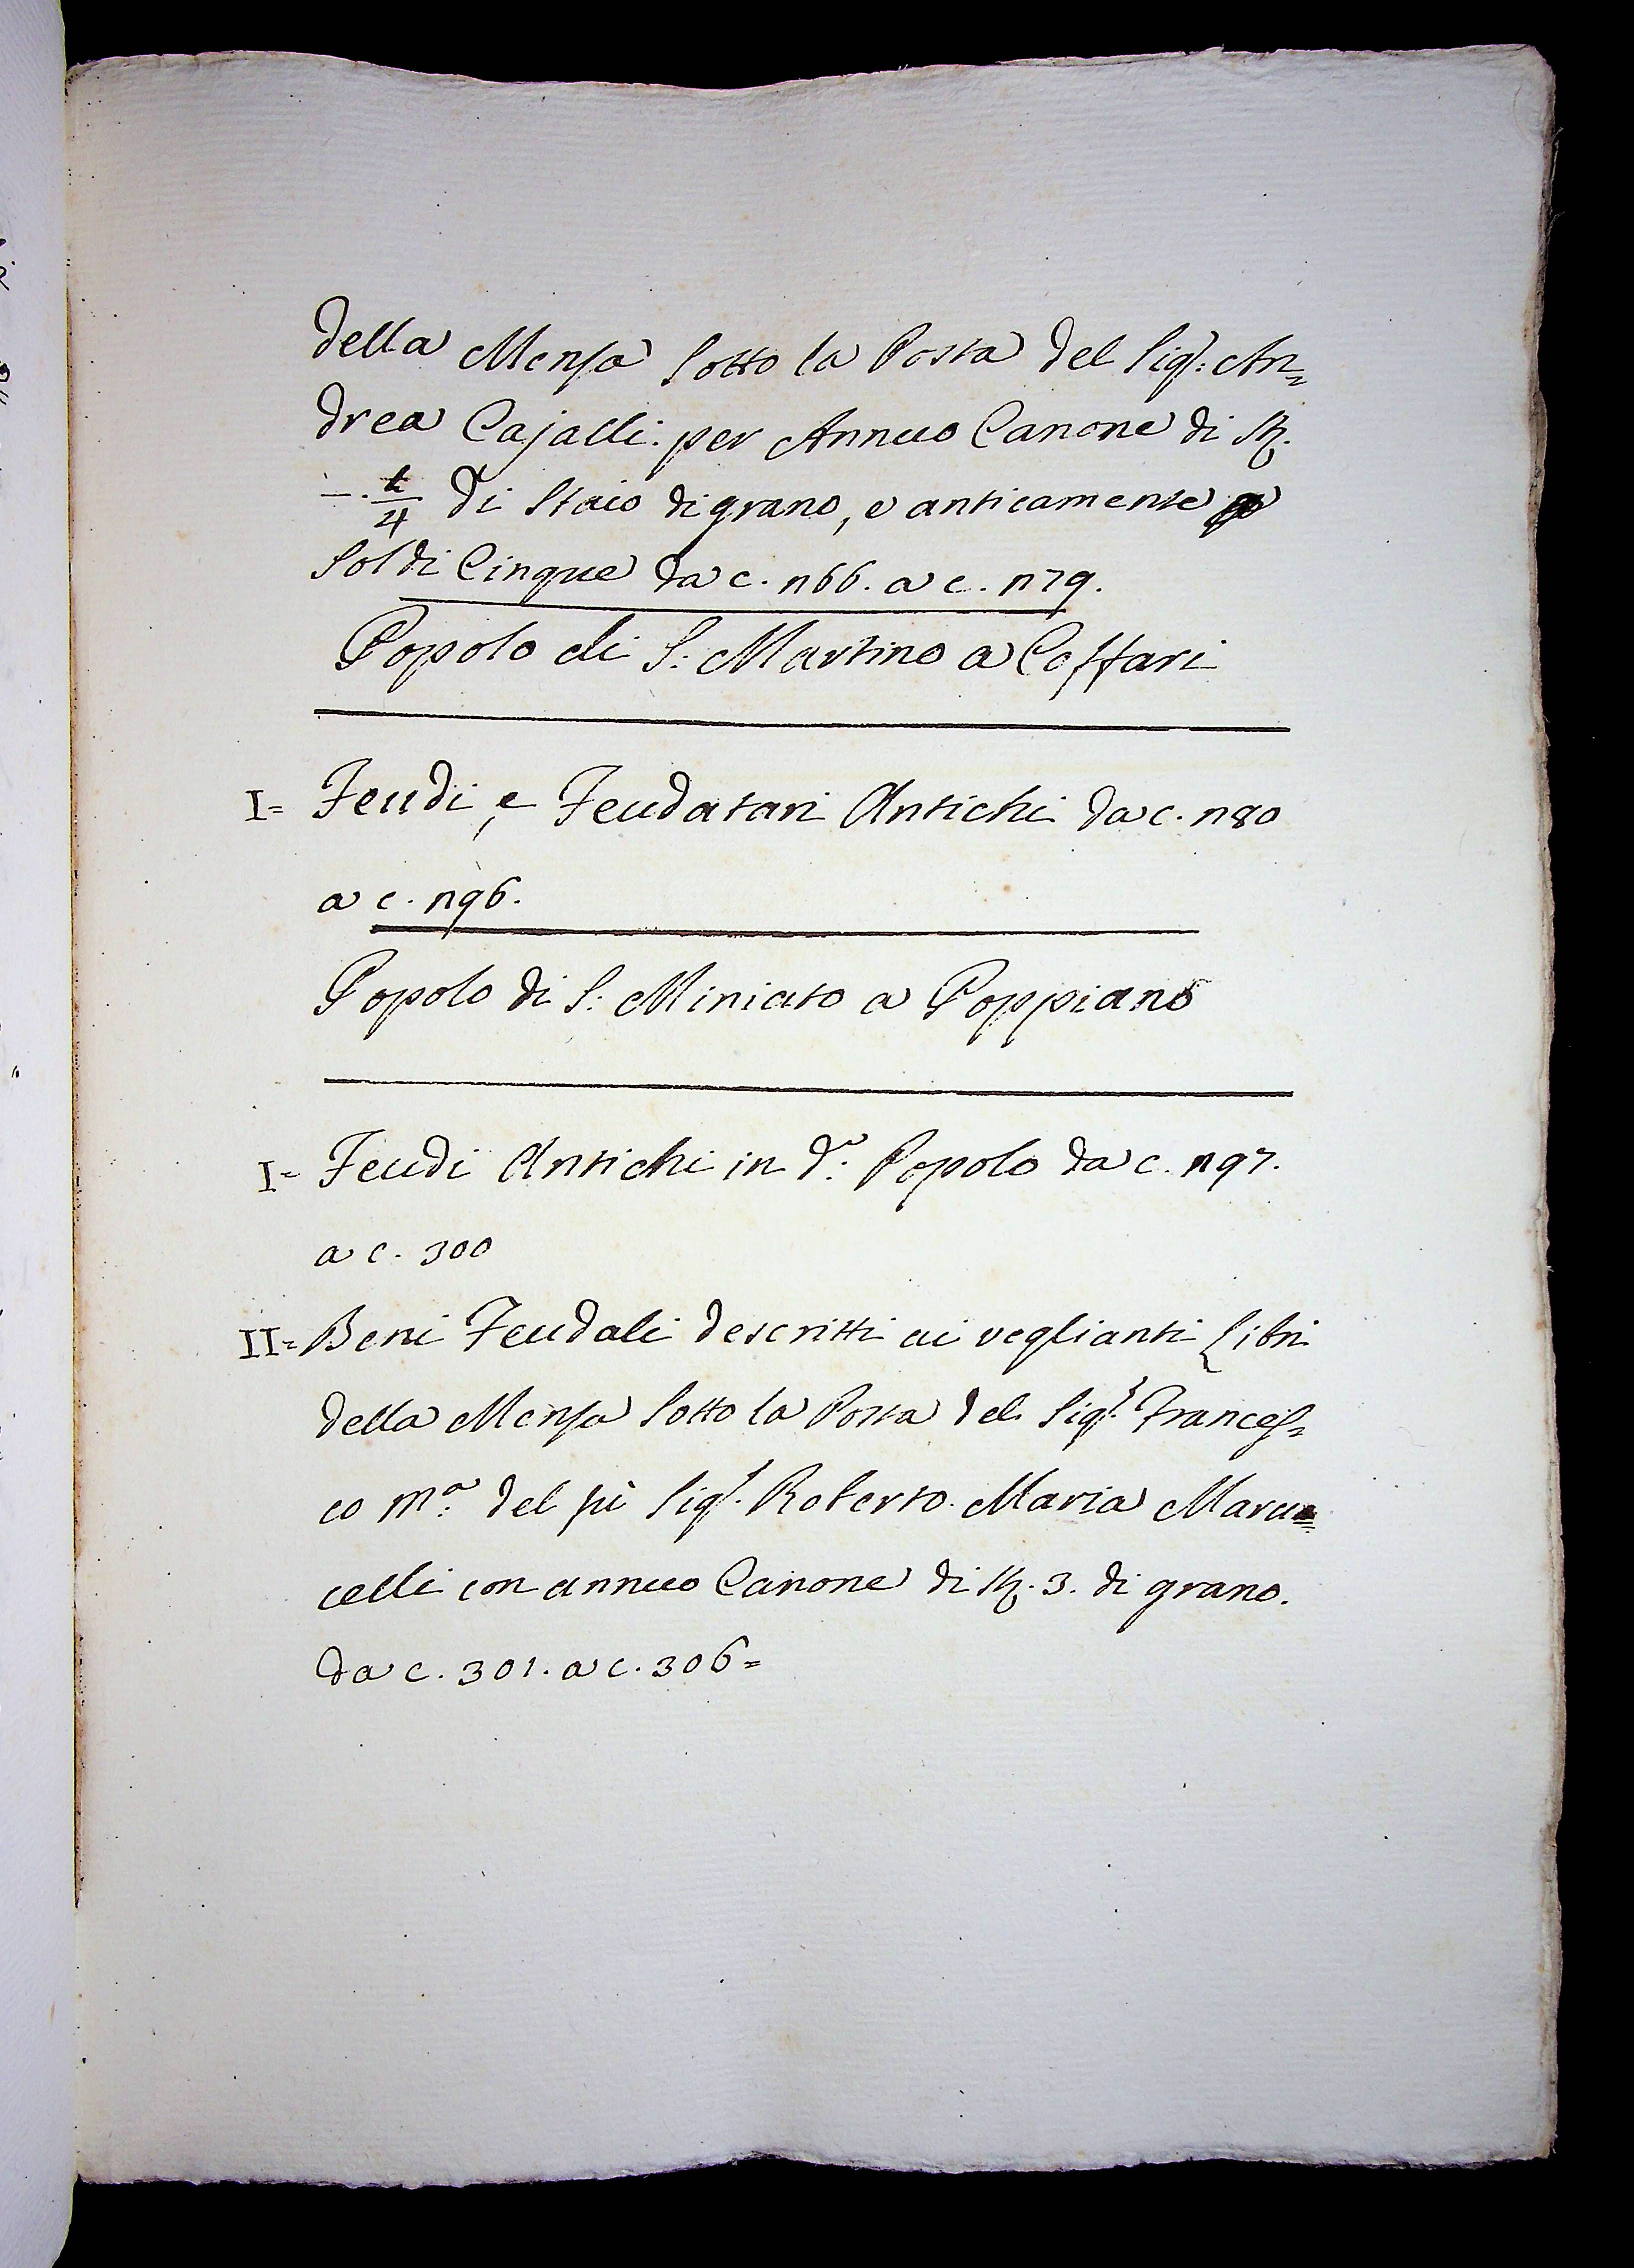 della Mensa sotto la Posta del Sig.r: An=
drea Cajalli. per Annuo Canone di St.
–. 1/4 di Staio di grano, e anticamente p
Soldi Cinque da c. 266. a c. 279.
Popolo di S: Martino a Coffari
I= Feudi, e Feudatari Antichi da c. 280
a c. 296.
Popolo di S: Miniato a Poppiano
I= Feudi Antichi in d.o: Popolo da c. 297.
a c. 300
II= Beni Feudali descritti ai veglianti Libri
della Mensa sotto la Posta del Sig.r Frances=
co M.a: del fù Sig.r. Roberto Maria Maru=
celli con annuo Canone di St. 3. di grano.
da c. 301. a c. 306=